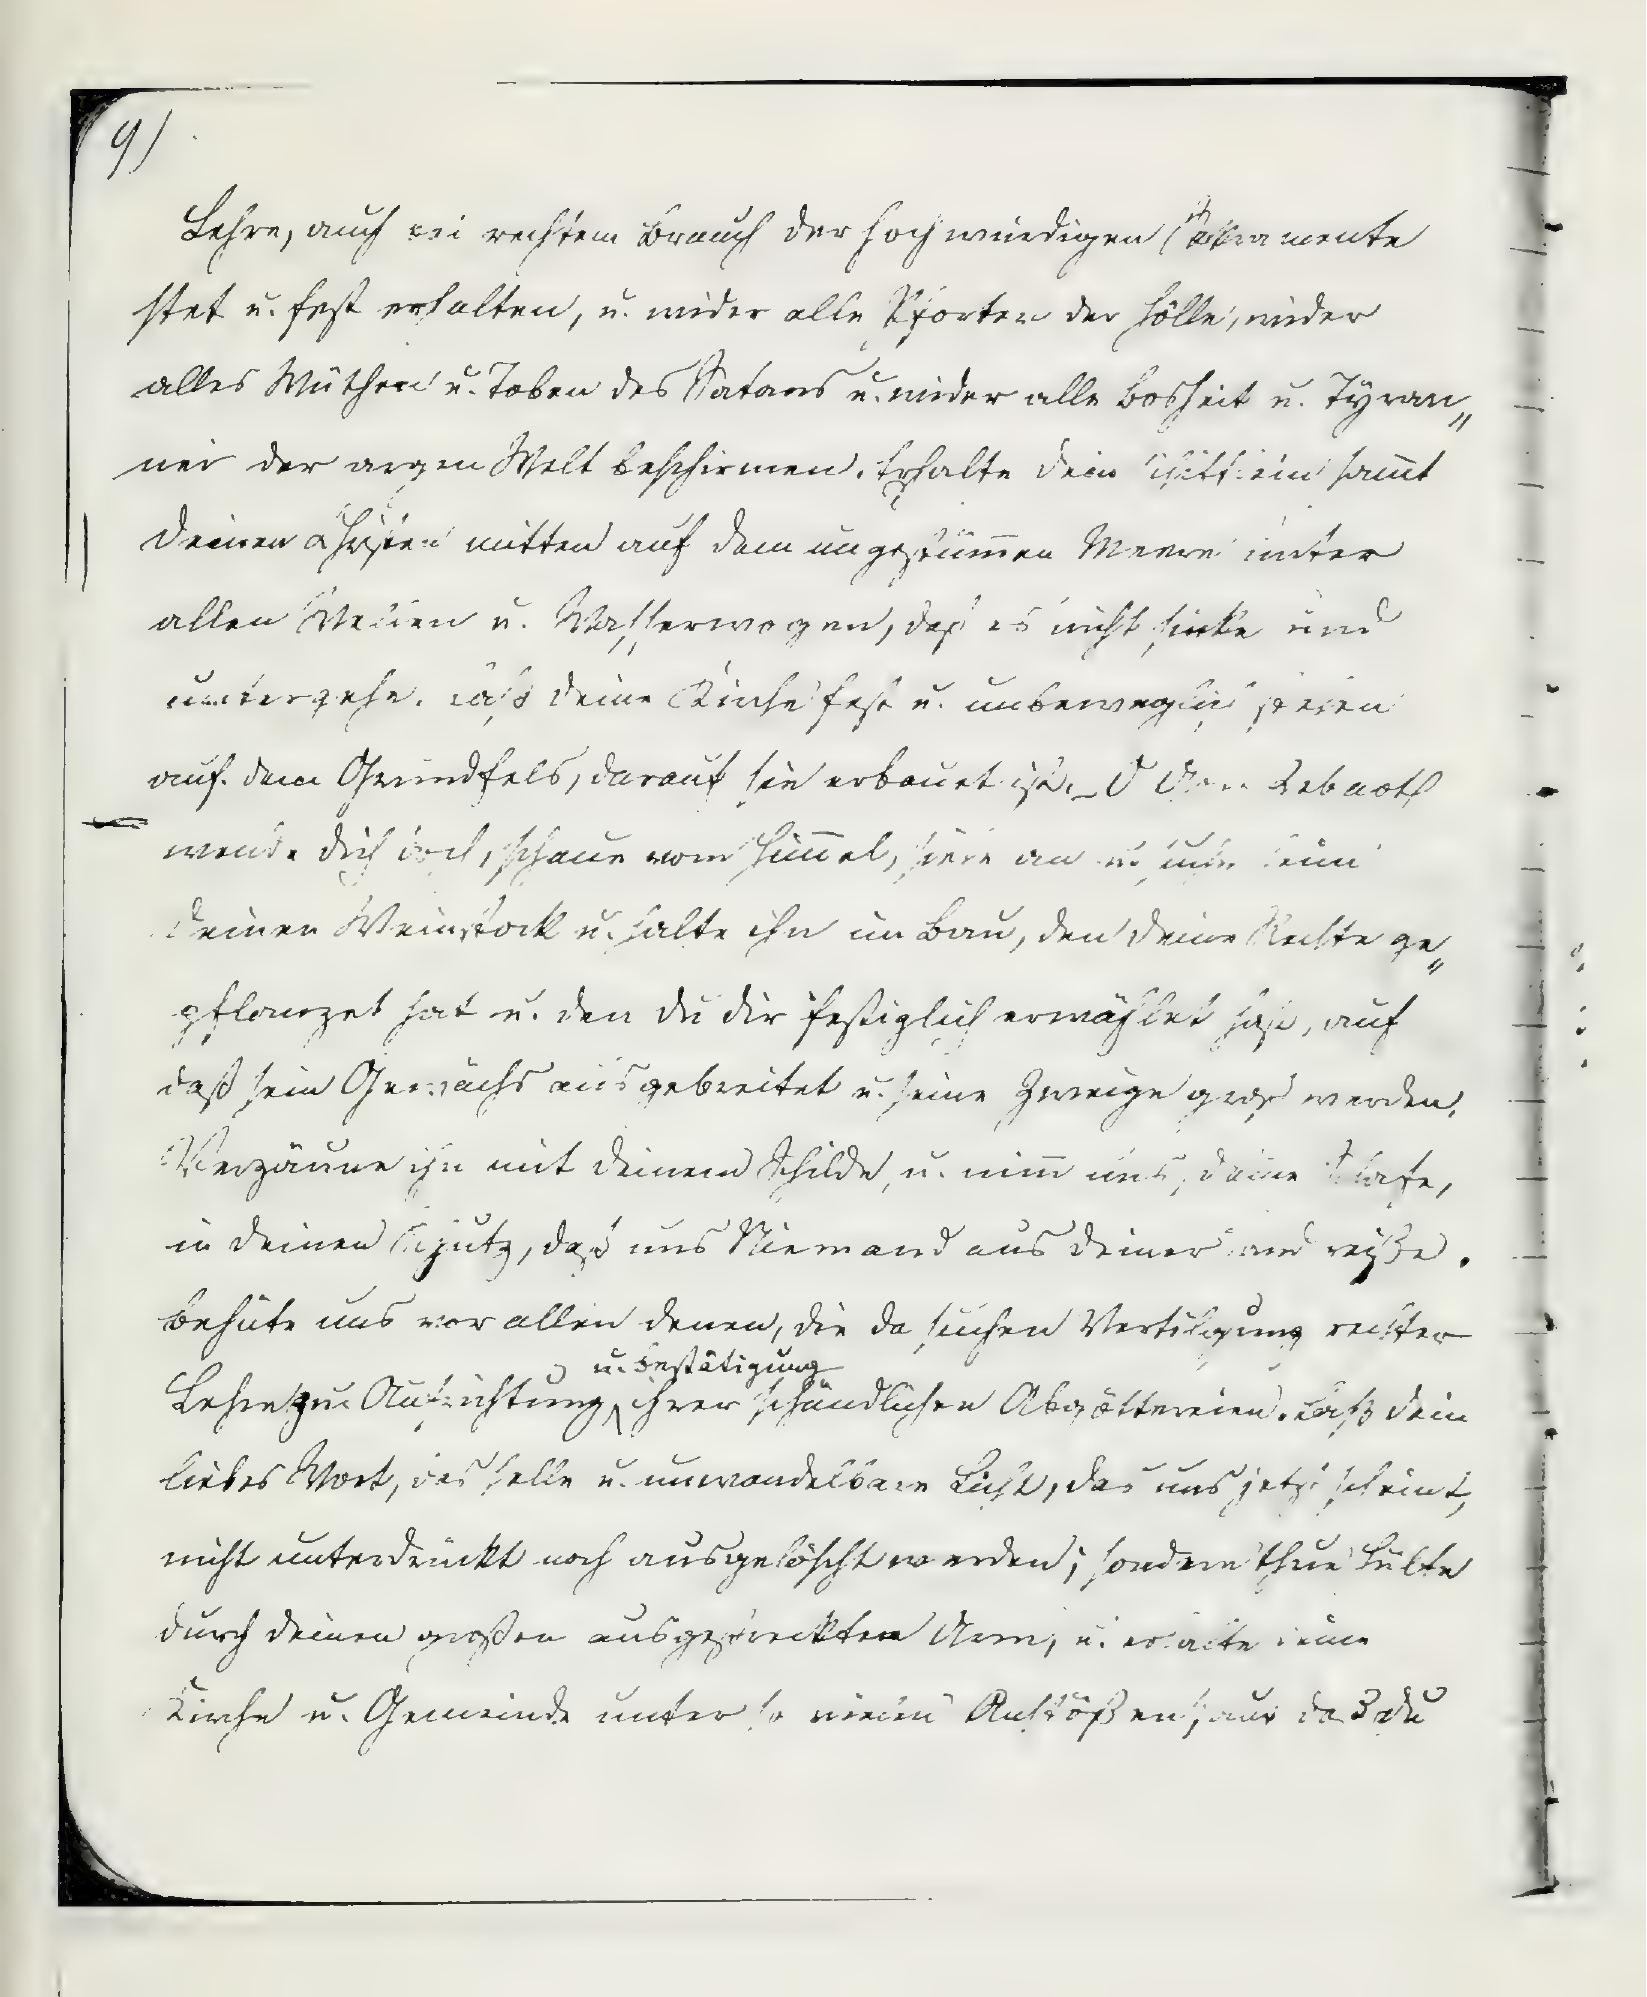 9)
Lehre, auch bei rechtem Brauch der hochwürdigen Sakramente
stet u. fest erhalten, u. wider alle Pforten der Hölle, wider
alles Wüthen u. Toben des Satans u. wider alle Bosheit u. Tyran„
nei der argen Welt beschirmen. Erhalte dein Schifflein sam̅t
deinen Christen mitten auf dem ungestüm̅en Meere unter
allen Wellen u. Wasserwogen, daß es nicht sinke und
untergehe. Laß deine Kirche fest u. unbeweglich stehen
auf dem Grundfels, darauf sie erbauet ist. _ O Herr Zebaoth
wende dich doch, schaue vom Him̅el, siehe an u. suche heim
deinen Weinstock u. halte ihn im Bau, den deine Rechte ge„
pflanzet hat u. den du dir festiglich erwählet hast, auf
daß sein Gewächs ausgebreitet u. seine Zweige groß werden.
Verzäune ihn mit deinem Schilde, u. nim̅ uns, deine Schafe,
in deinen Schutz, daß uns Niemand aus deiner Hand reiße.
Behüte uns vor allen denen, die da suchen Vertilgung rechter
u. Bestätigung
Lehre zur Aufrichtung ihrer schändlichen Abgöttereien. Laß dein
liebes Wort, das helle u. unwandelbare Licht, das uns jetzt scheint,
nicht unterdrückt noch ausgelöscht werden; sondern thue Hülfe
durch deinen großen ausgestreckten Arm, u. erhalte deine
Kirche u. Gemeinde unter so vielen Anstößen, auf daß du